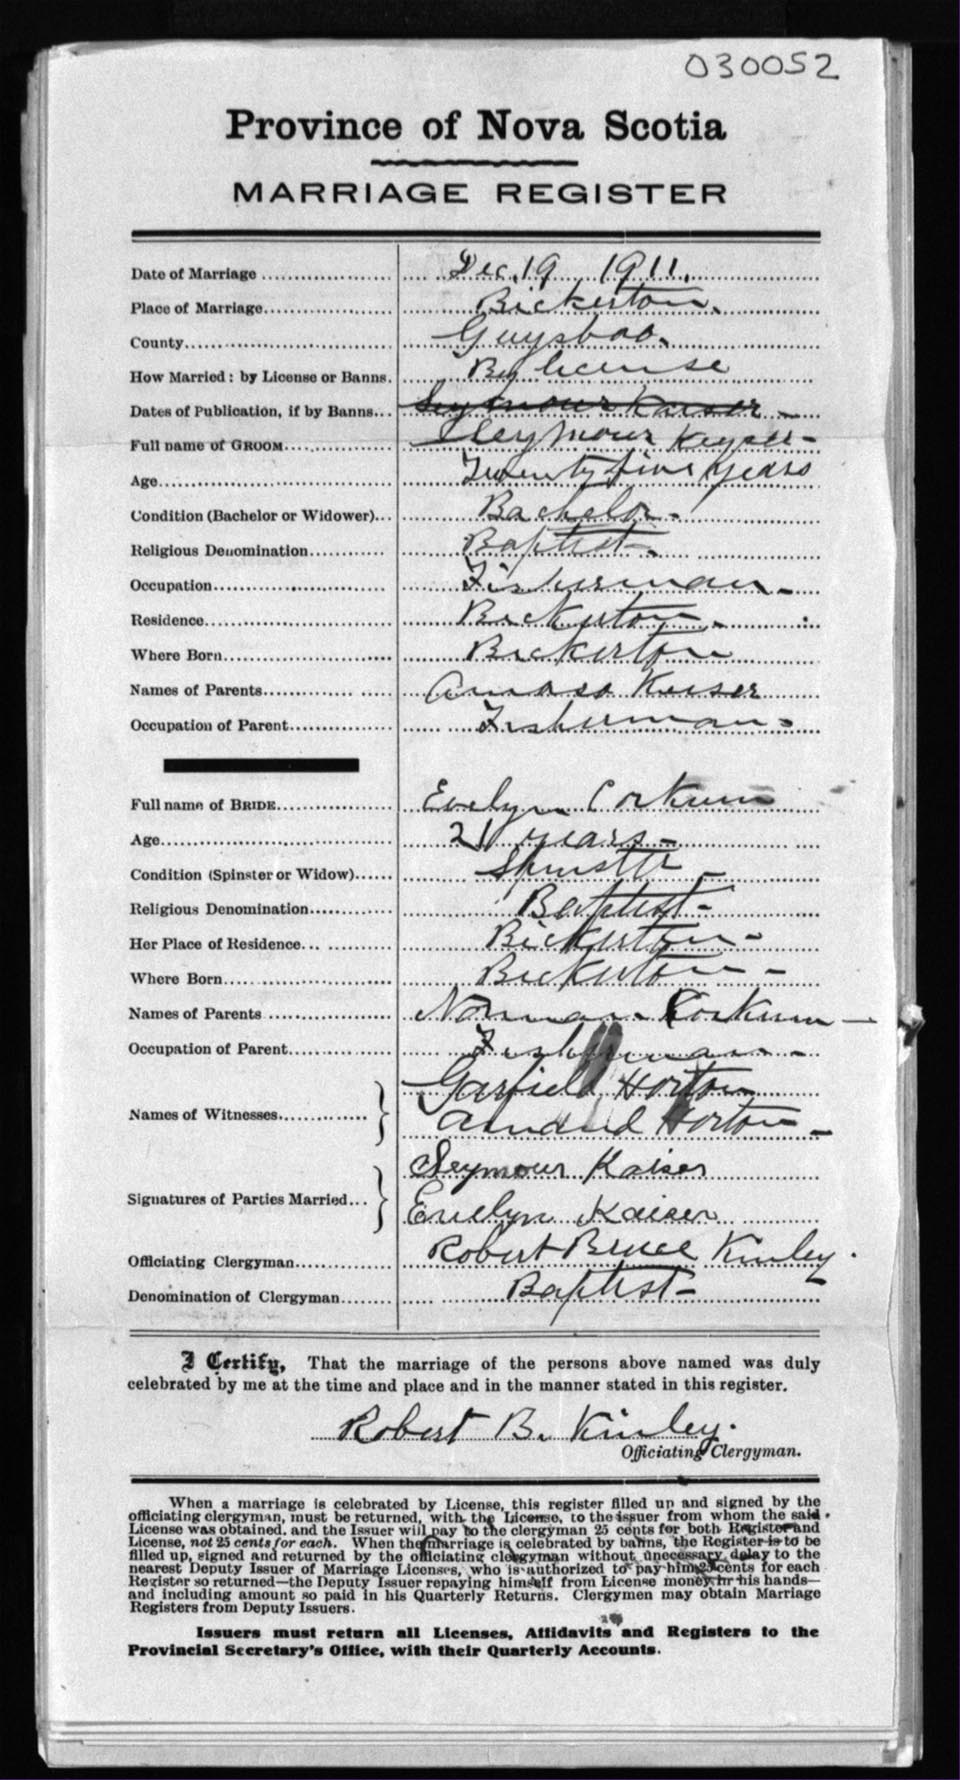 030052
Province of Nova Scotia
MARRIAGE REGISTER
Date of Marriage Dec. 19 1911.
Place of Marriage Bickerton.
County Guysboo.
How Married: by License or Banns. By license
Dates of Publication, if by Banns Seymour Kaiser -
Full name of GROOM Seymour Keyser -
Age Twenty five years
Condition (Bachelor or Widower) Bachelor -
Religious Denomination Baptist -
Occupation Fisherman -
Residence Bickerton -
Where Born Bickerton
Names of Parents Amasa Keiser
Occupation of Parent Fisherman -
Full name of BRIDE Evelyn Corkum
Age 21 years -
Condition (Spinster or Widow) Spinster -
Religious Denomination Baptist -
Her Place of Residence Bickerton -
Where Born Bickerton -
Names of Parents Norman Corkum -
Occupation of Parent Fisherman -
Names of Witnesses Garfield Horton
Horton -
Signatures of Parties Married Seymour Kaiser
Evelyn Kaiser
Officiating Clergyman Robert Bruce Kinley.
Denomination of Clergyman Baptist -
I Certify, That the marriage of the persons above named was duly
celebrated by me at the time and place and in the manner stated in this register.
Robert B. Kinley.
Officiating Clergyman.
When a marriage is celebrated by License, this register filled up and signed by the
officiating clergyman, must be returned, with the License, to the issuer from whom the said
License was obtained, and the Issuer will pay to the clergyman 25 cents for both Register and
License, not 25 cents for each. When the marriage is celebrated by banns, the Register is to be
filled up, signed and returned by the officiating clergyman without unnecessary delay to the
nearest Deputy Issuer of Marriage Licenses, who is authorized to pay him 25 cents for each
Register so returned—the Deputy Issuer repaying himself from License money in his hands—
and including amount so paid in his Quarterly Returns. Clergymen may obtain Marriage
Registers from Deputy Issuers.
Issuers must return all Licenses, Affidavits and Registers to the
Provincial Secretary's Office, with their Quarterly Accounts.